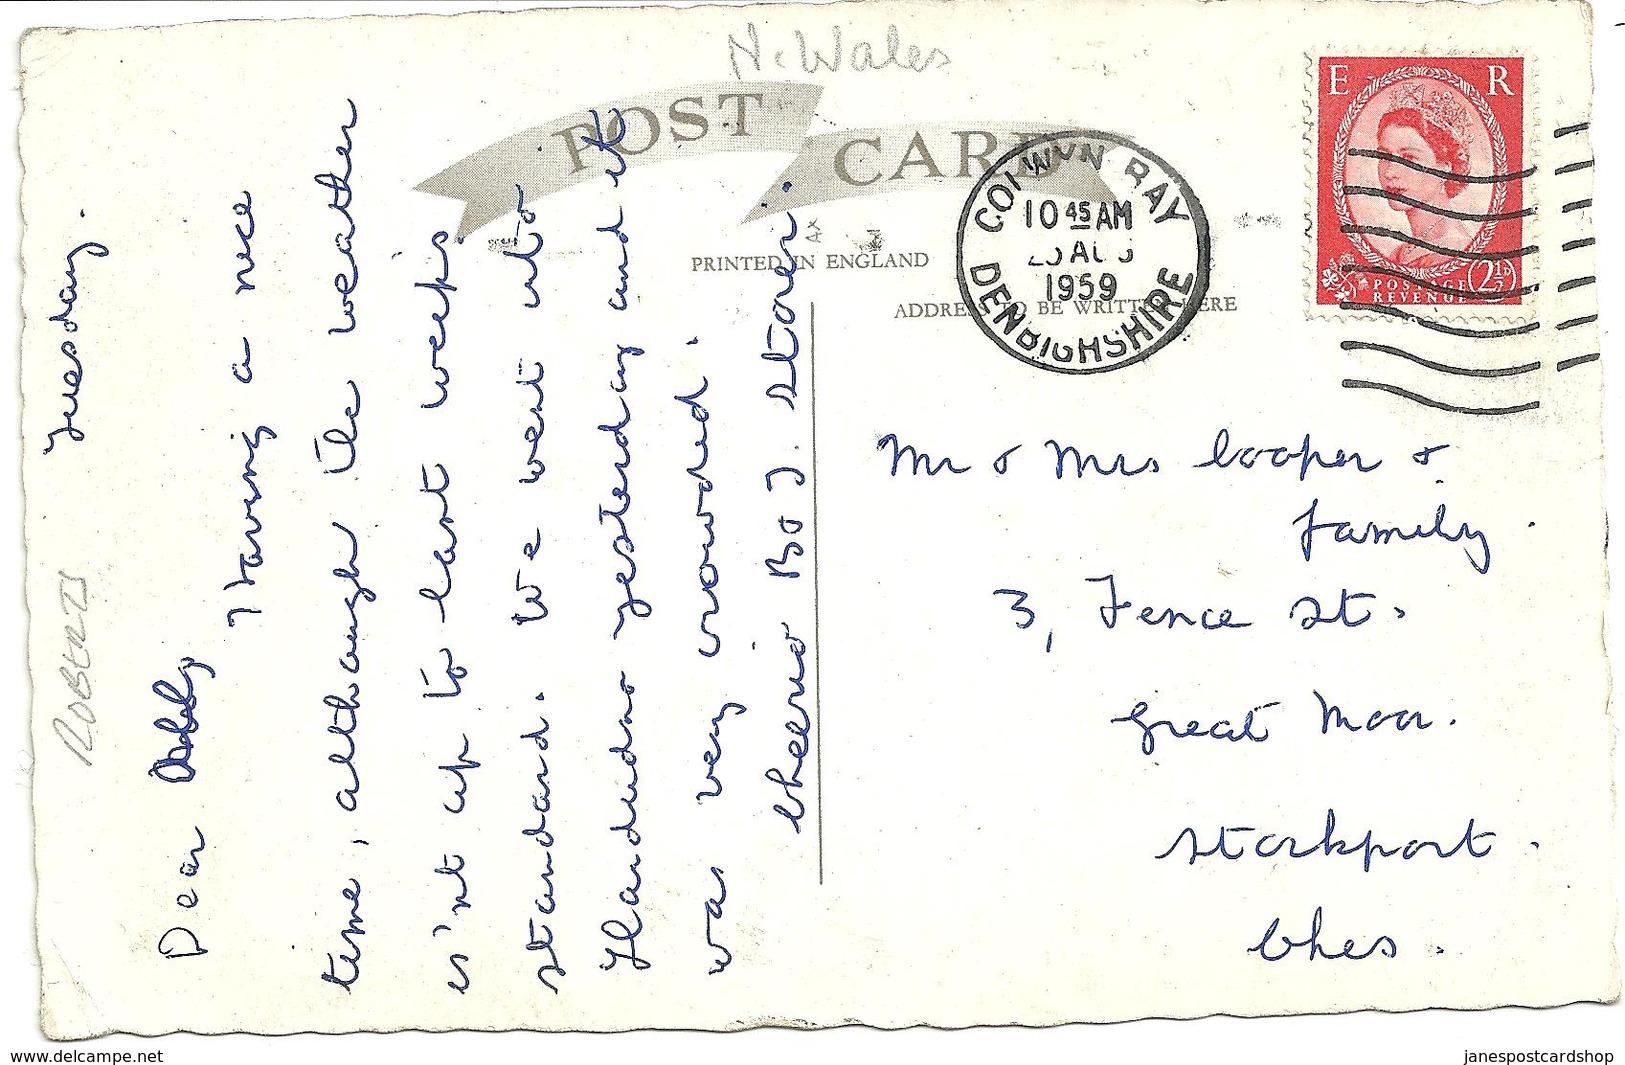 N. Wales
POST CARD
PRINTED IN ENGLAND
ADDRESS TO BE WRITTEN HERE
COLWYN BAY
10 45 AM
1959
DENBIGHSHIRE
E R
POSTAGE
REVENUE
2½D
ROBERTS
Tuesday.
Dear
Having a nice
time, although the weather
is'nt up to last weeks
standard. We went into
Llandudno yesterday and it
was very crowded.
Cheerio B & J. Stoner.
Mr & Mrs Cooper &
family.
3, Fence St.
Great Moor.
Stockport.
Ches.
www.delcampe.net
janespostcardshop